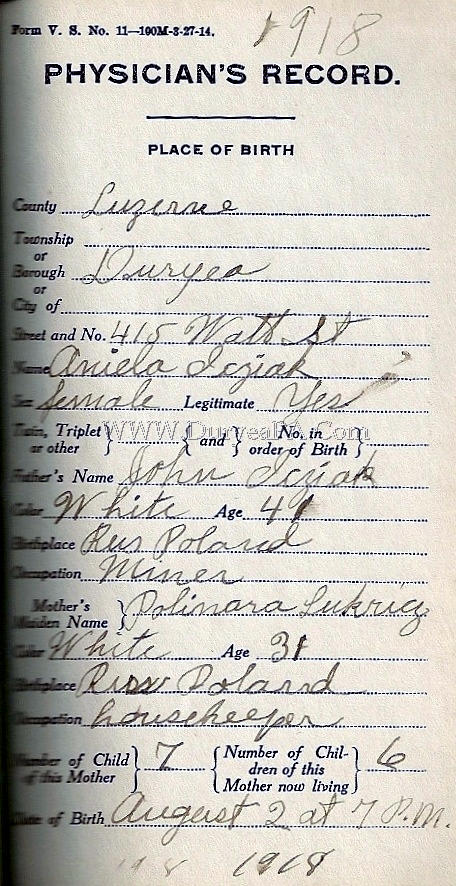 Form V. S. No. 11—100M-3-27-14.
1918
PHYSICIAN'S RECORD.
PLACE OF BIRTH
County Luzerne
Township
or
Borough Duryea
or
City of
Street and No. 415 Watt St
Name Aniela
Sex female Legitimate Yes
Twin, Triplet or other } { and } { No. in order of Birth }
WWW.DuryeaPA.Com
Father's Name John
Color White Age 41
Birthplace Rus Poland
Occupation Miner
Mother's Maiden Name }
Color White Age 31
Birthplace Russ Poland
Occupation housekeeper
Number of Child of this Mother } 7 { Number of Children of this Mother now living } 6
Date of Birth August 2 at 7 P.M.
1918